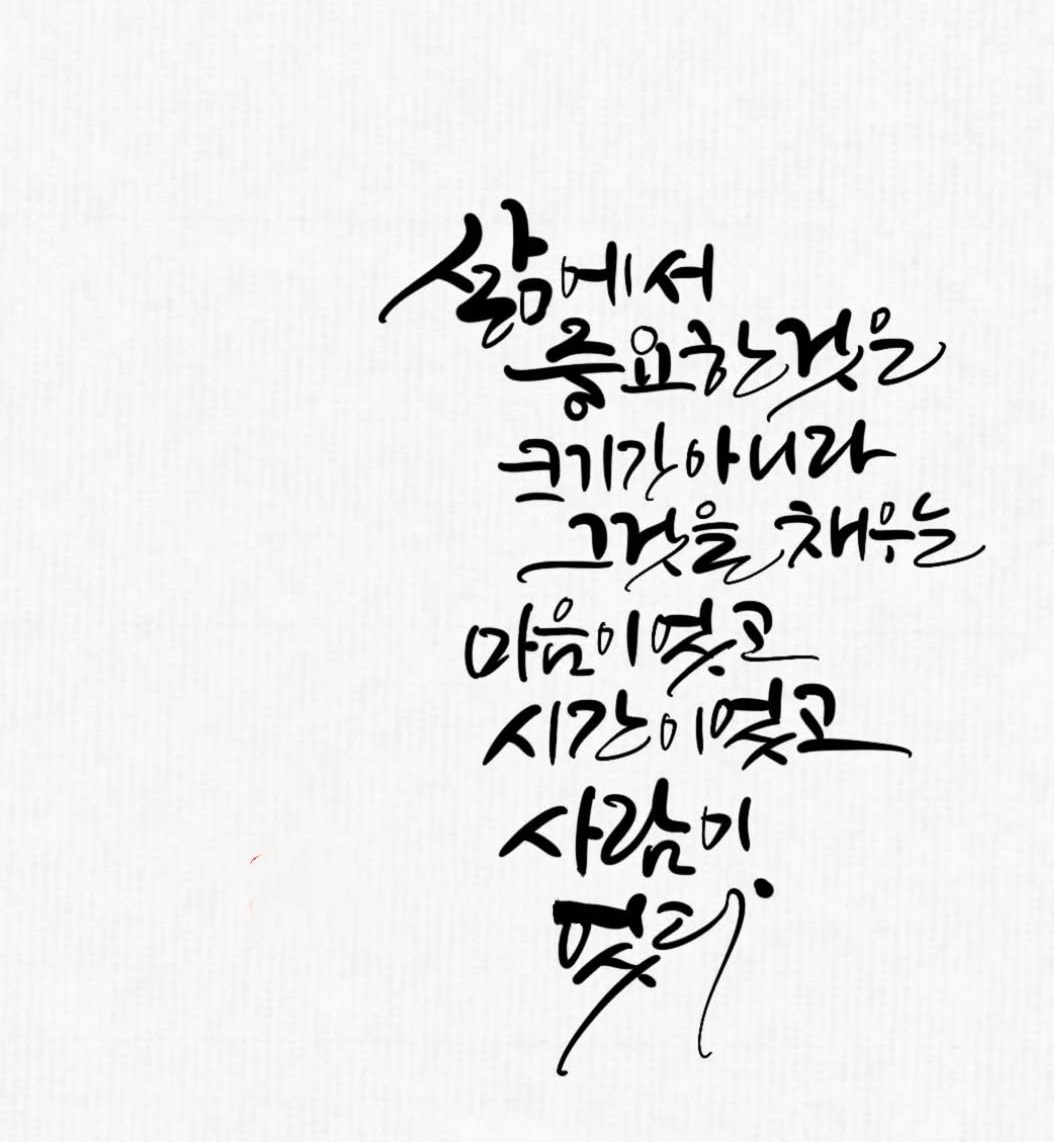 삶에서
중요한것은
크기가아니라
그것을 채우는
마음이었고
시간이었고
사람이
었다.